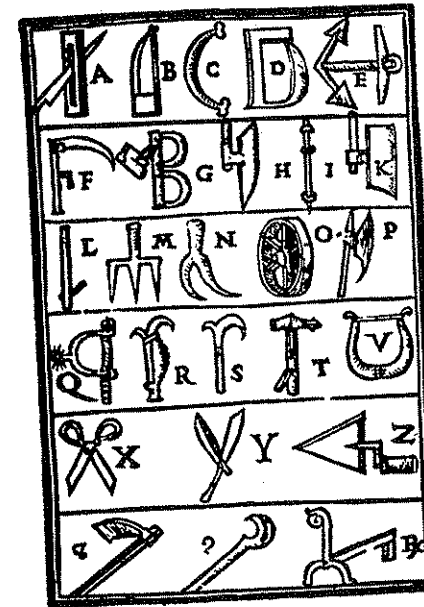 A B C D E
F G H I K
L M N O P
Q R S T V
X Y Z
?